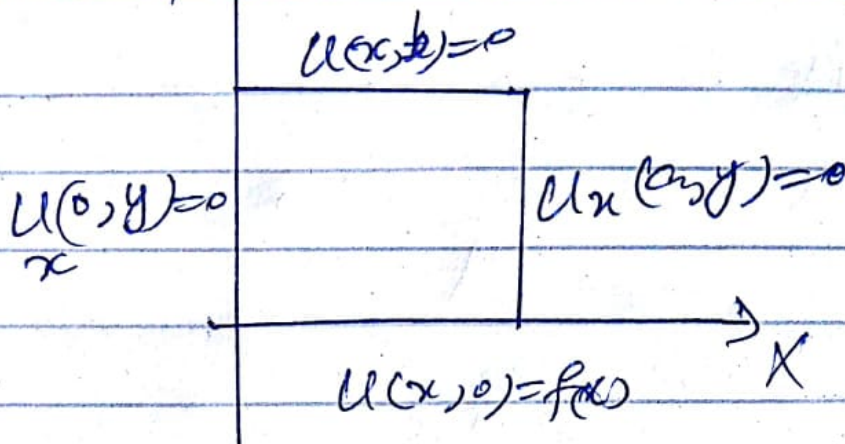 U(x,b)=0
U(0,y)=0
x
Ux(a,y)=0
X
U(x,0)=f(x)